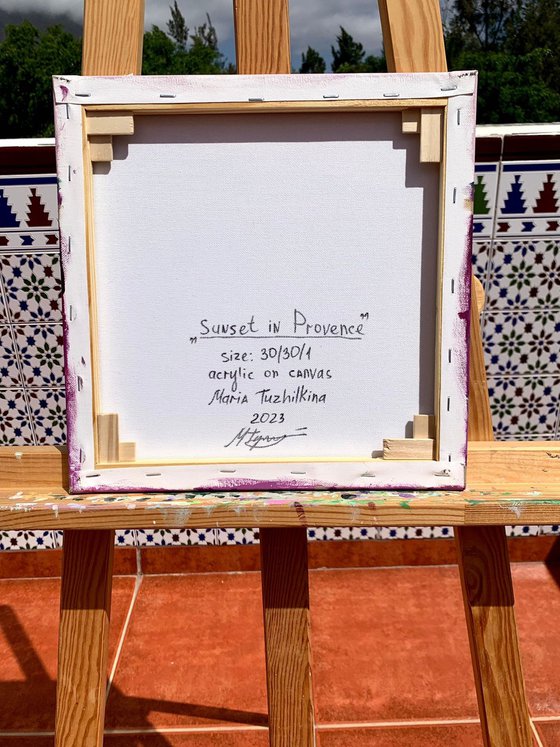 „Sunset in Provence”
size: 30/30/1
acrylic on canvas
Maria Tuzhilkina
2023